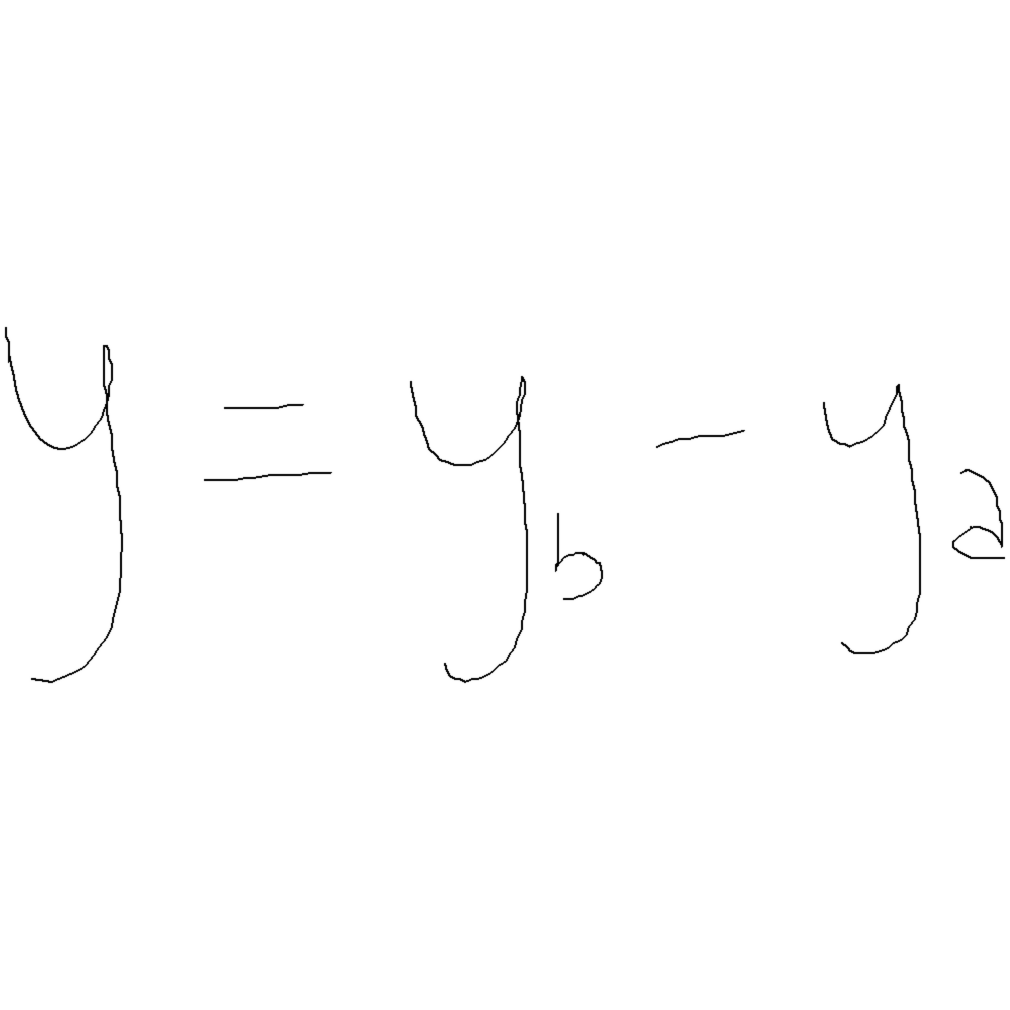 y = y_b - y_a